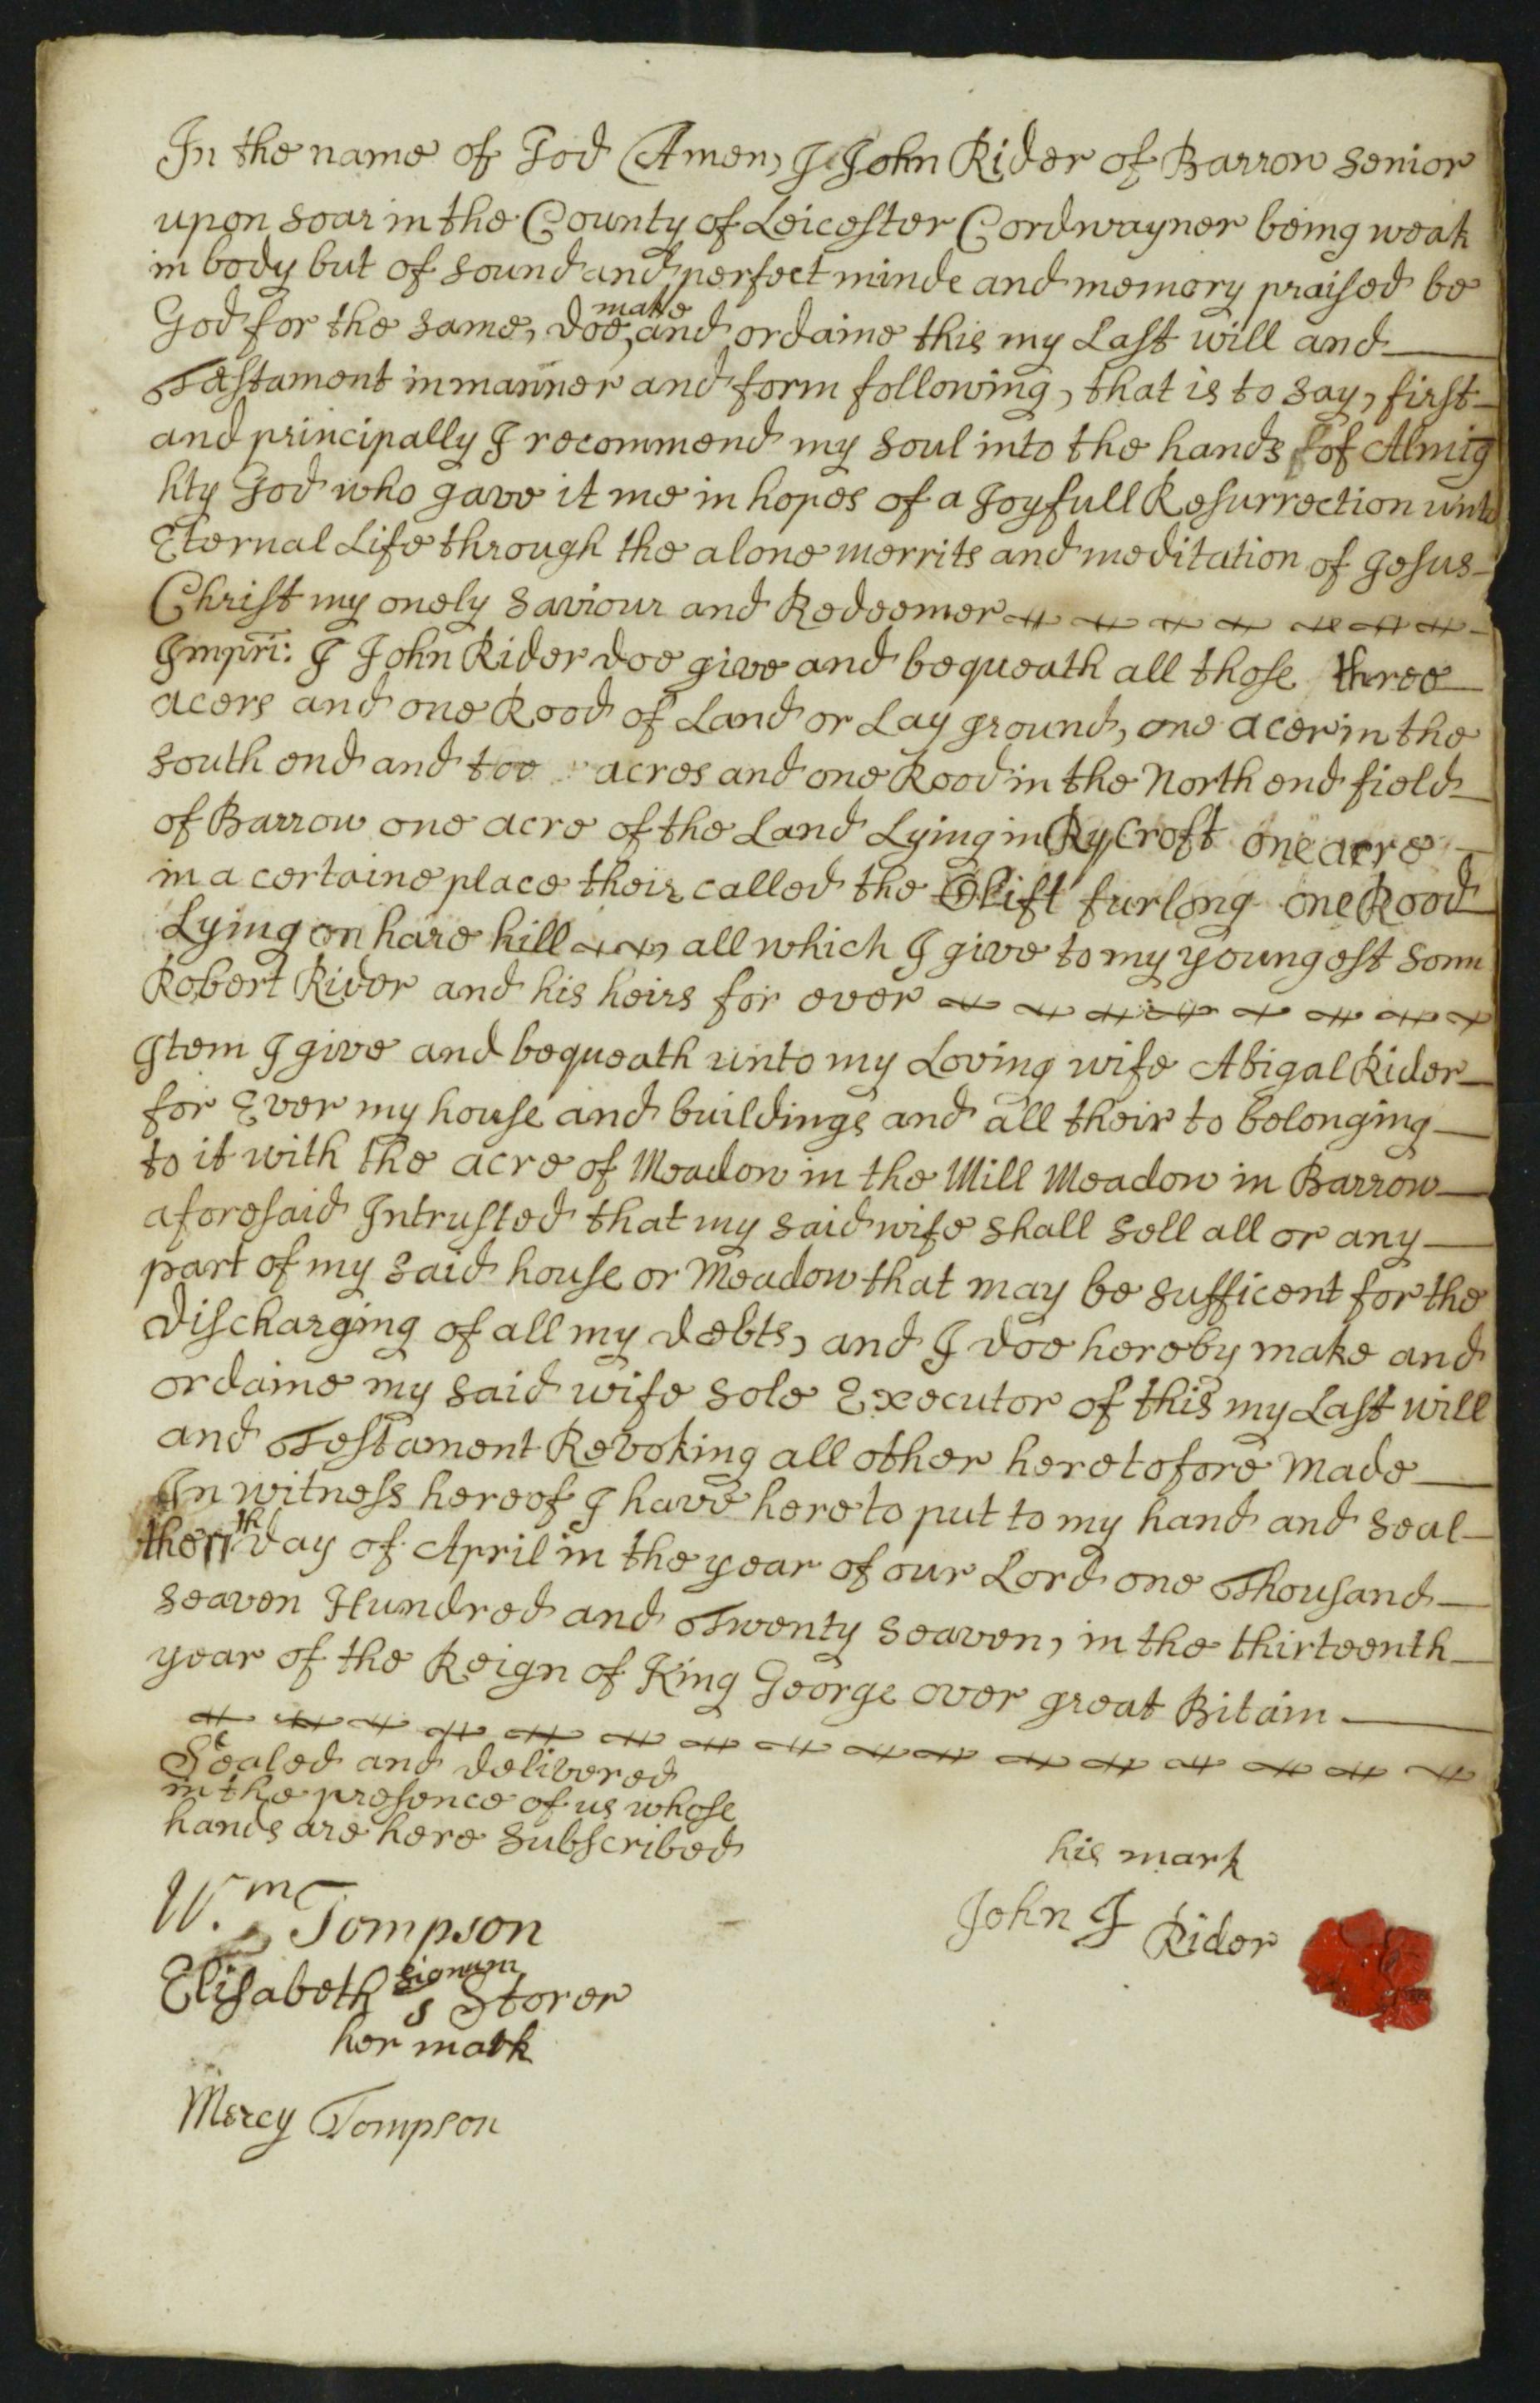 In the name of God Amen, I John Rider of Barrow senior
upon soar in the County of Leicester Cordwayner being weak
in body but of sound and perfect minde and memory praised be
make
God for the same, doe, and ordaine this my Last will and
Testament in manner and form following, that is to say, first
and principally I recommend my soul into the hands of Almig
hty God who gave it me in hopes of a Joyfull Resurrection unto
Eternal Life through the alone merrits and meditation of Jesus
Christ my onely Saviour and Redeemer
Impri: I John Rider doe give and bequeath all those three
acers and one Rood of Land or Lay ground, one acer in the
south end and too acres and one Rood in the North end field
of Barrow one acre of the Land Lying in Ry Croft one acre
in a certaine place their called the Clift furlong one Rood
Lying on hare hill all which I give to my youngest sonn
Robert Rider and his heirs for ever
Item I give and bequeath unto my Loving wife Abigal Rider
for Ever my house and buildings and all their to belonging
to it with the acre of Meadow in the Mill Meadow in Barrow
aforesaid Intrusted that my said wife shall sell all or any
part of my said house or Meadow that may be sufficent for the
Discharging of all my debts, and I doe hereby make and
ordaine my said wife sole Executor of this my Last will
and Testament Revoking all other heretofore made
In witness hereof I have hereto put to my hand and seal
the 11th day of April in the year of our Lord one Thousand
seaven Hundred and Twenty seaven, in the thirteenth
year of the Reign of King George over great Bitain
Sealed and delivered
in the presence of us whose
hands are here subscribed
his mark
Wm. Tompson
John J Rider
signum
Elisabeth S Storer
her mark
Mercy Tompson